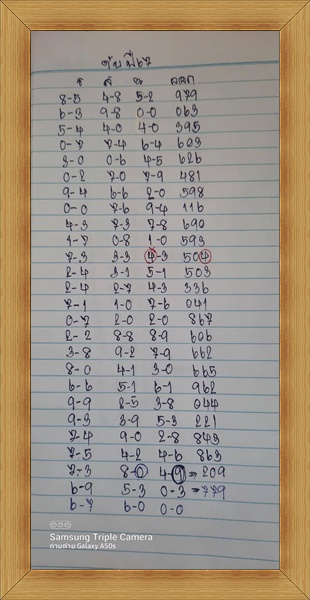 ร ส น ออก
8-5 4-8 5-2 979
6-3 9-8 0-0 063
5-4 4-0 4-0 395
0-7 7-4 6-4 603
3-0 0-6 4-5 626
0-2 7-0 7-9 481
9-4 6-6 2-0 598
0-0 7-6 9-4 116
4-3 7-3 7-8 690
1-7 0-8 1-0 593
7-3 3-3 4-3 504
2-4 3-1 5-1 503
2-4 2-7 4-3 336
7-1 1-0 7-6 041
0-7 2-0 2-0 867
2-2 8-8 8-9 606
3-8 9-2 7-9 662
8-0 4-1 3-0 665
6-6 5-1 6-1 962
9-9 2-5 3-8 044
9-3 3-9 5-3 221
7-4 9-0 2-8 843
7-5 4-2 4-6 863
7-3 8-0 4-9 = 209
6-9 5-3 0-3 = 779
6-7 6-0 0-0
Samsung Triple Camera
ถ่ายด้วย Galaxy A50s